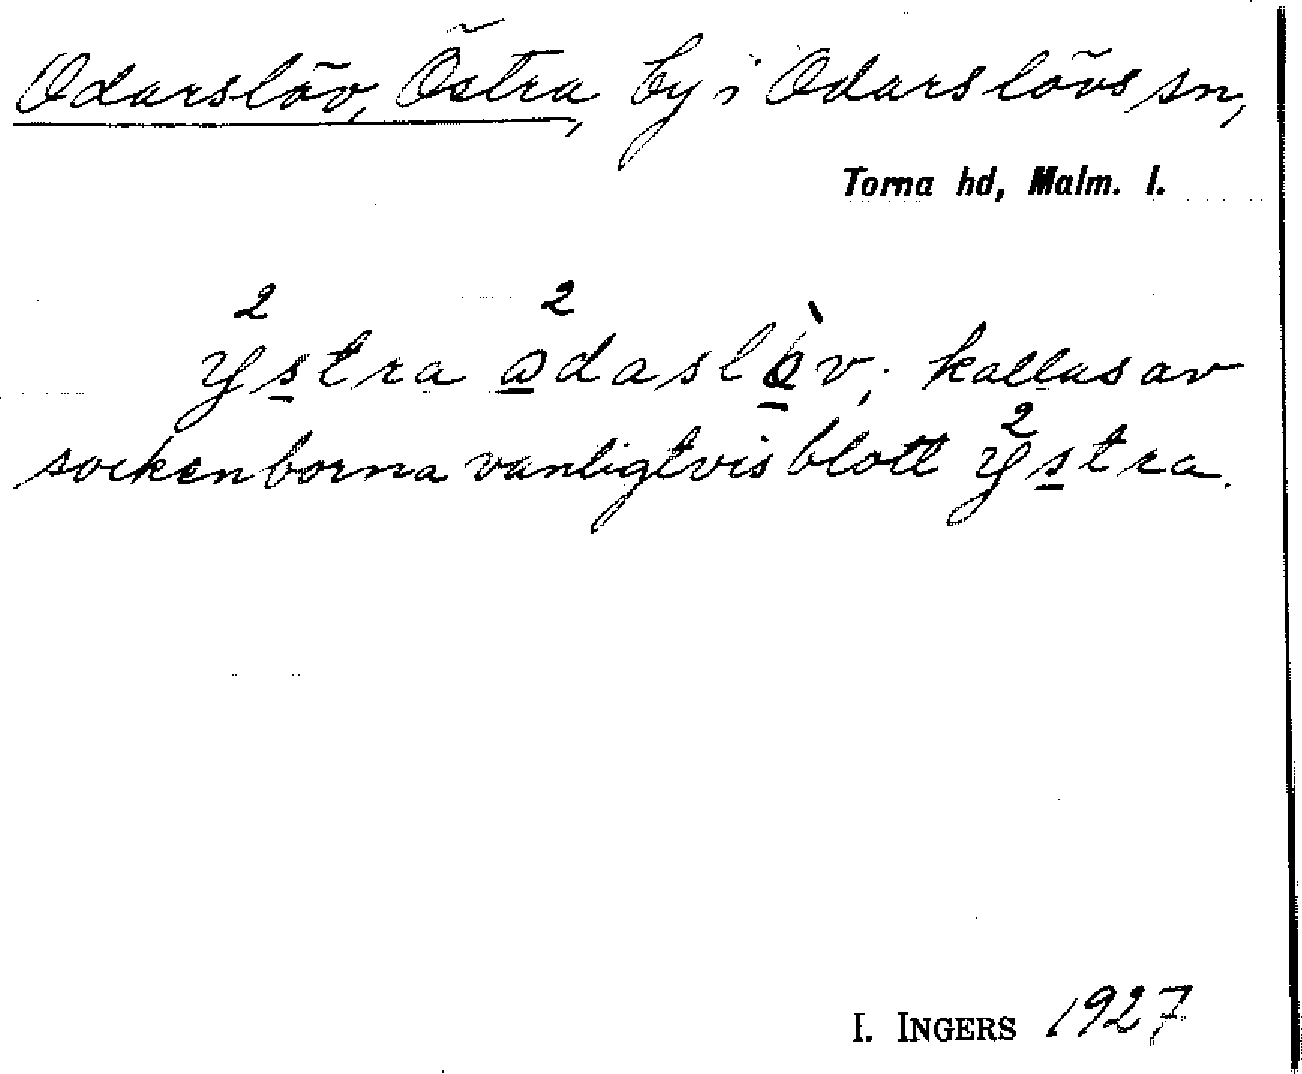 Odarslöv, Östra, by i Odarslövs sn,
Torna hd, Malm. l.
ystra odaslòv; kallas av
sockenborna vanligtvis blott ystra.
I. INGERS 1927